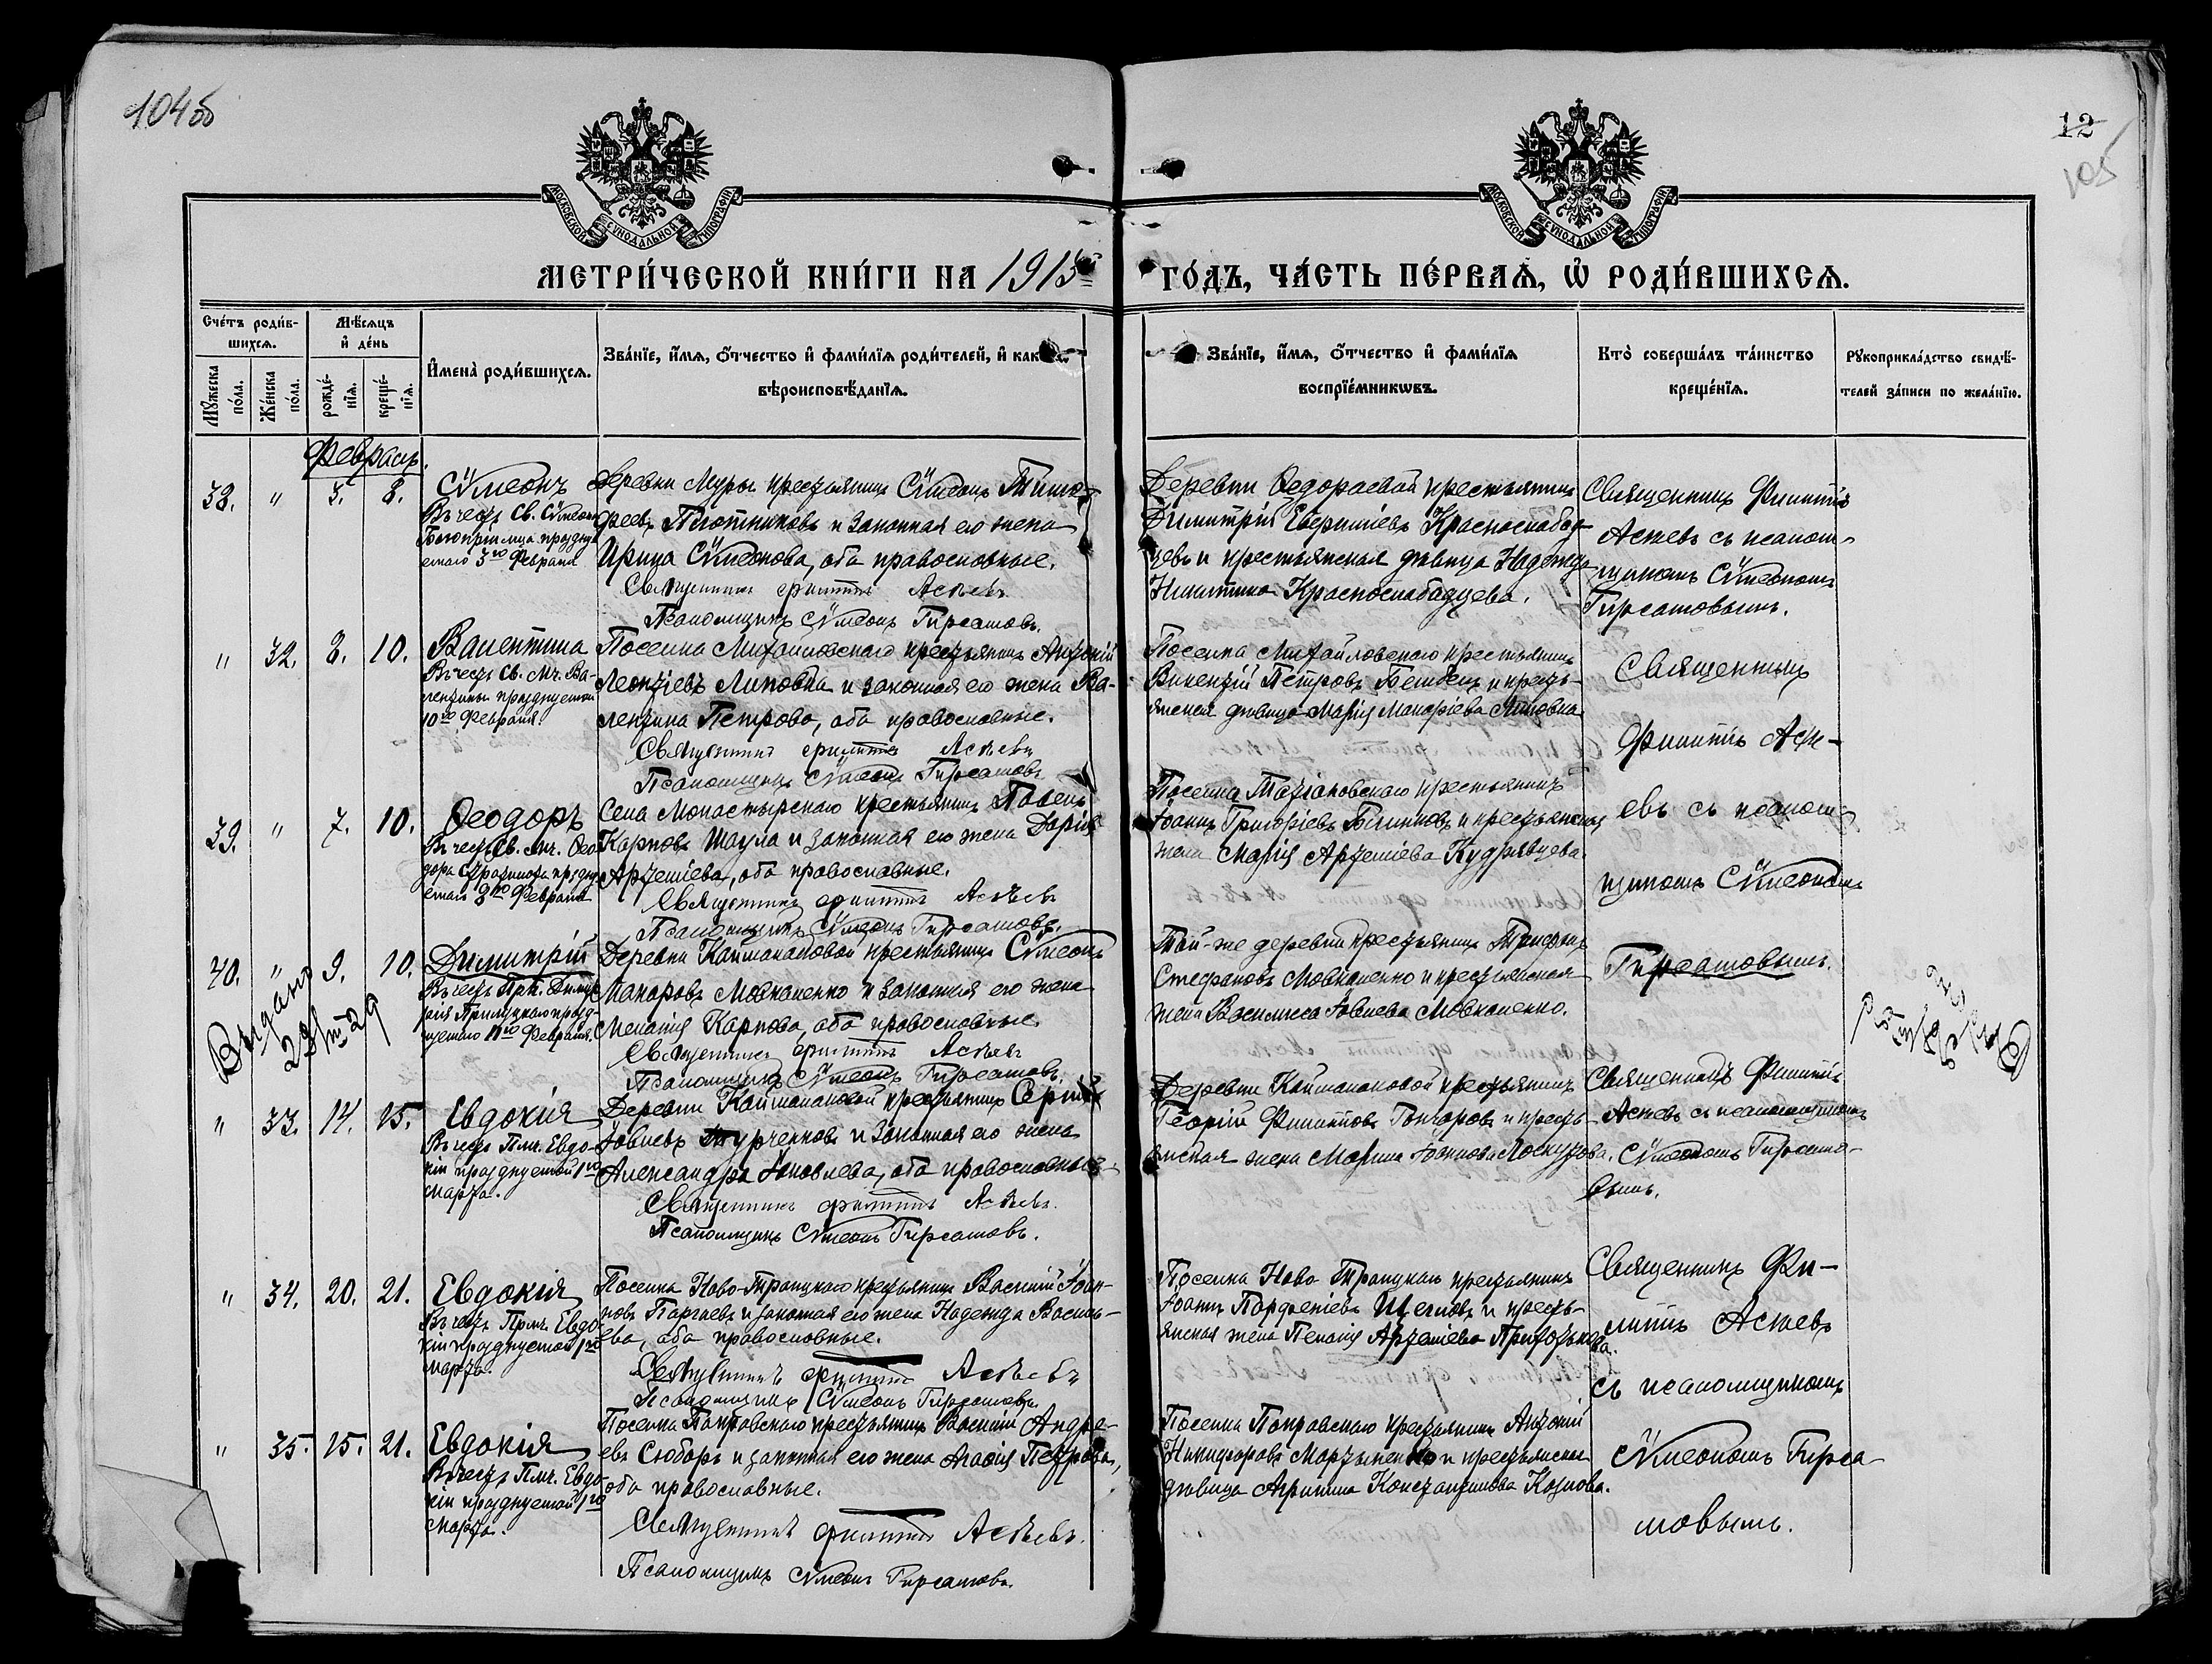 104 об
12
105
МОСКОВСКОЙ СѴНОДАЛЬНОЙ ТИПОГРАФІИ
МОСКОВСКОЙ СѴНОДАЛЬНОЙ ТИПОГРАФІИ
МЕТРИ́ЧЕСКОЙ КНИ́ГИ НА 1915
ГО́ДЪ, ЧА́СТЬ ПЕ́РВАѦ, Ѡ҆ РОДИ́ВШИХСѦ.
Сче́тъ роди́в-
шихсѧ.
Мѣ́сѧцъ
и҆ де́нь
Мꙋ́жеска
по́ла.
Же́нска
по́ла.
рожде́-
нїѧ.
креще́-
нїѧ.
И҆мена̀ роди́вшихсѧ.
Зва́нїе, и҆́мѧ, ѻ҆́тчество и҆ фами́лїѧ роди́телей, и҆ как
вѣроисповѣ́данїѧ.
Зва́нїе, и҆́мѧ, ѻ҆́тчество и҆ фами́лїѧ
воспрїе́мникѡвъ.
Кто̀ соверша́лъ та́инство
креще́нїѧ.
Рꙋкоприкла́дство свидѣ́-
телей за́писи по жела́нїю.
Февраль.
38. " 3. 8. Сѵмеонъ
Въ честь Св. Сѵмеона
Богопріимца праздну
емаго 3го Февраля
Деревни Муры крестьянинъ Сѵмеонъ Тимо-
феевъ Плотниковъ и законная его жена
Ирина Сѵмеонова, оба православные.
Священникъ Филиппъ Асѣевъ
Псаломщикъ Сѵмеонъ Гирсамовъ.
Деревни Ѳедораевой крестьянинъ
Димитрій Евфиміевъ Краснослабод-
цевъ и крестьянская дѣвица Надежда
Никитина Краснослабодцева.
Священникъ Филиппъ
Асѣевъ съ псалом-
щикомъ Сѵмеономъ
Гирсамовымъ.
" 32. 8. 10. Валентина
Въ честь Св. Мч. Ва-
лентины празднуемой
10го Февраля.
Поселка Михайловскаго крестьянинъ Антоній
Леонтіевъ Липовка и законная его жена Ва-
лентина Петрова, оба православные.
Священникъ Филиппъ Асѣевъ
Псаломщикъ Сѵмеонъ Гирсамовъ
Поселка Михайловскаго крестьянинъ
Викентій Петровъ и кресть-
янская дѣвица Марія Макаріева Липовка
Священникъ
Филиппъ Асѣ-
евъ съ псалом-
щикомъ Сѵмеономъ
Гирсамовымъ.
39. " 7. 10. Ѳеодоръ
Въ честь Св. Мч. Ѳео
дора Стратилата праздну
емаго 8го Февраля
Села Монастырскаго крестьянинъ Павелъ
Карповъ Шаула и законная его жена Дарія
Артеміева, оба православные.
Священникъ Филиппъ Асѣевъ
Псаломщикъ Сѵмеонъ Гирсамовъ.
Поселка крестьянинъ
Іоаннъ Григоріевъ Блинковъ и крестьянская
жена Марія Артеміева Кудрявцева.
40. " 9. 10. Димитрій
Въ честь Прп. Дими
рія Прилуцкаго празд-
нуемаго 11го Февраля.
Деревни Кайманаковой крестьянинъ Сѵмеонъ
Макаровъ Мовкаленко и законная его жена
Меланія Карпова, оба православные.
Священникъ Филиппъ Асѣевъ
Псаломщикъ Сѵмеонъ Гирсамовъ.
Той-же деревни крестьянинъ Трифонъ
Стефановъ Мовкаленко и крестьянская
жена Василисса Іовлева Мовкаленко.
Выдано
" 33. 14. 15. Евдокія
Въ честь Пмч. Евдо-
кіи празднуемой 1го
Марта.
Деревни Кайманаковой крестьянинъ Сергій
Іовлевъ Турченковъ и законная его жена
Александра Яковлева, оба православные
Священникъ Филиппъ Асѣевъ.
Псаломщикъ Сѵмеонъ Гирсамовъ.
Деревни Кайманаковой крестьянинъ
Георгій Филипповъ Гончаровъ и кресть-
янская жена Марина Іоаннова Лоскутова.
Священникъ Филиппъ
Асѣевъ съ псаломщикомъ
Сѵмеономъ Гирсамо-
вымъ.
" 34. 20. 21. Евдокія
Въ честь Прмч. Евдо
кіи празднуемой 1го
Марта.
Поселка Ново-Троицкаго крестьянинъ Василій Іоан-
новъ и законная его жена Надежда Василь-
ева, оба православные.
Священникъ Филиппъ Асѣевъ
Псаломщикъ Сѵмеонъ Гирсамовъ.
Поселка Ново Троицкаго крестьянинъ
Іоаннъ Парфеніевъ Щегловъ и кресть-
янская жена Пелагія Артеміева Приходькова.
Священникъ Фи-
липпъ Асѣевъ
съ псаломщикомъ
Сѵмеономъ Гирса-
мовымъ.
" 35. 15. 21. Евдокія
Въ честь Пмч. Евдо-
кіи празднуемой 1го
Марта.
Поселка Покровскаго крестьянинъ Василій Андре-
евъ Сюборь и законная его жена Агафія Петрова,
оба православные.
Священникъ Филиппъ Асѣевъ.
Псаломщикъ Сѵмеонъ Гирсамовъ.
Поселка Покровскаго крестьянинъ Антоній
Никифоровъ Мартыненко и крестьянская
дѣвица Агрипина Константинова Козлова.